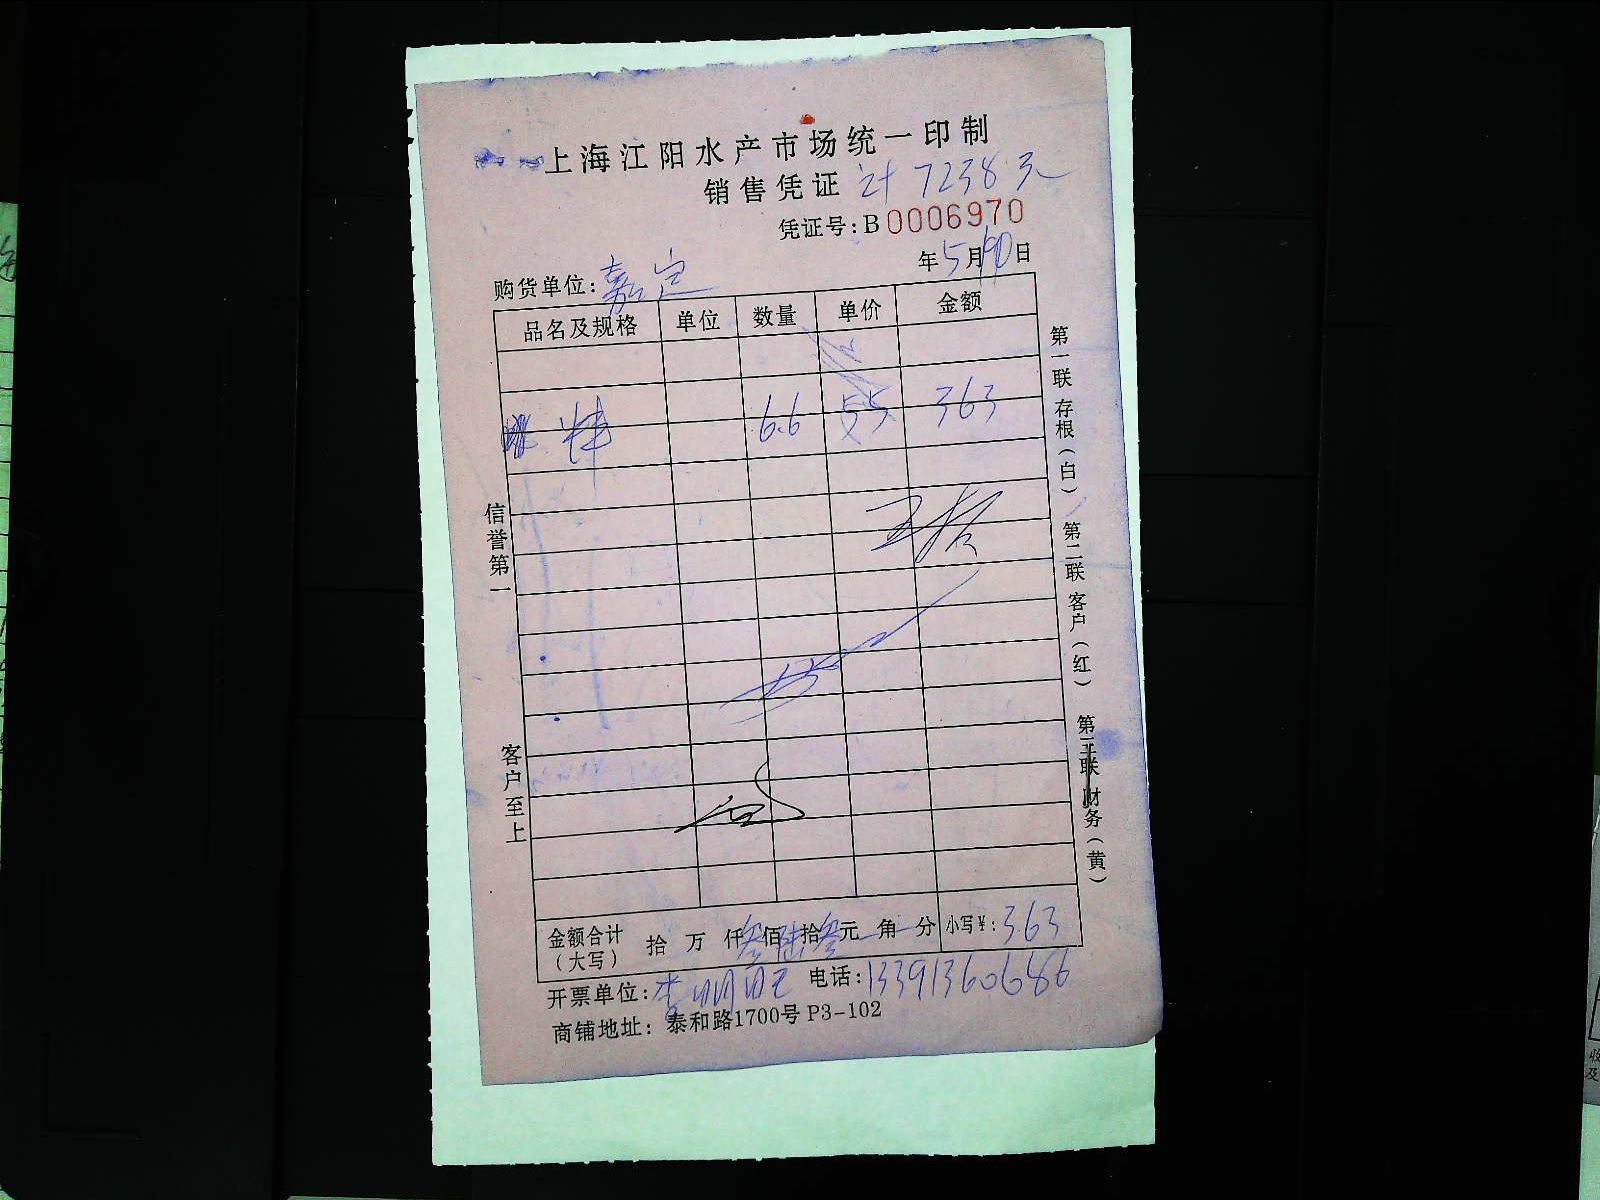 上海江阳水产市场统一印制
销售凭证 计7238元
凭证号:B0006970
年5月 日
购货单位:嘉定
品名及规格 单位 数量 单价 金额
6.6 55 363
信誉第一
客户至上
第一联 存根(白) 第二联 客户(红) 第三联 财务(黄)
金额合计(大写) 拾 万 仟叁佰陆拾叁元 角 分 小写¥:363
开票单位:李明旺 电话:13391360686
商铺地址: 泰和路1700号 P3-102